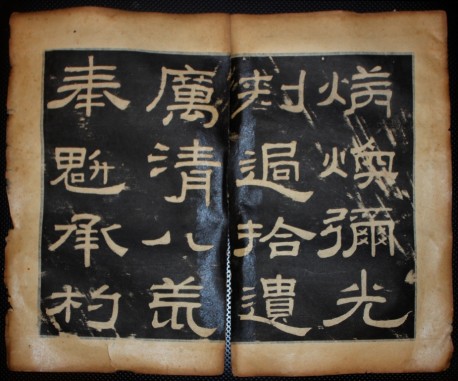 炳煥彌光
刺過拾遺
厲清八荒
奉魁承杓